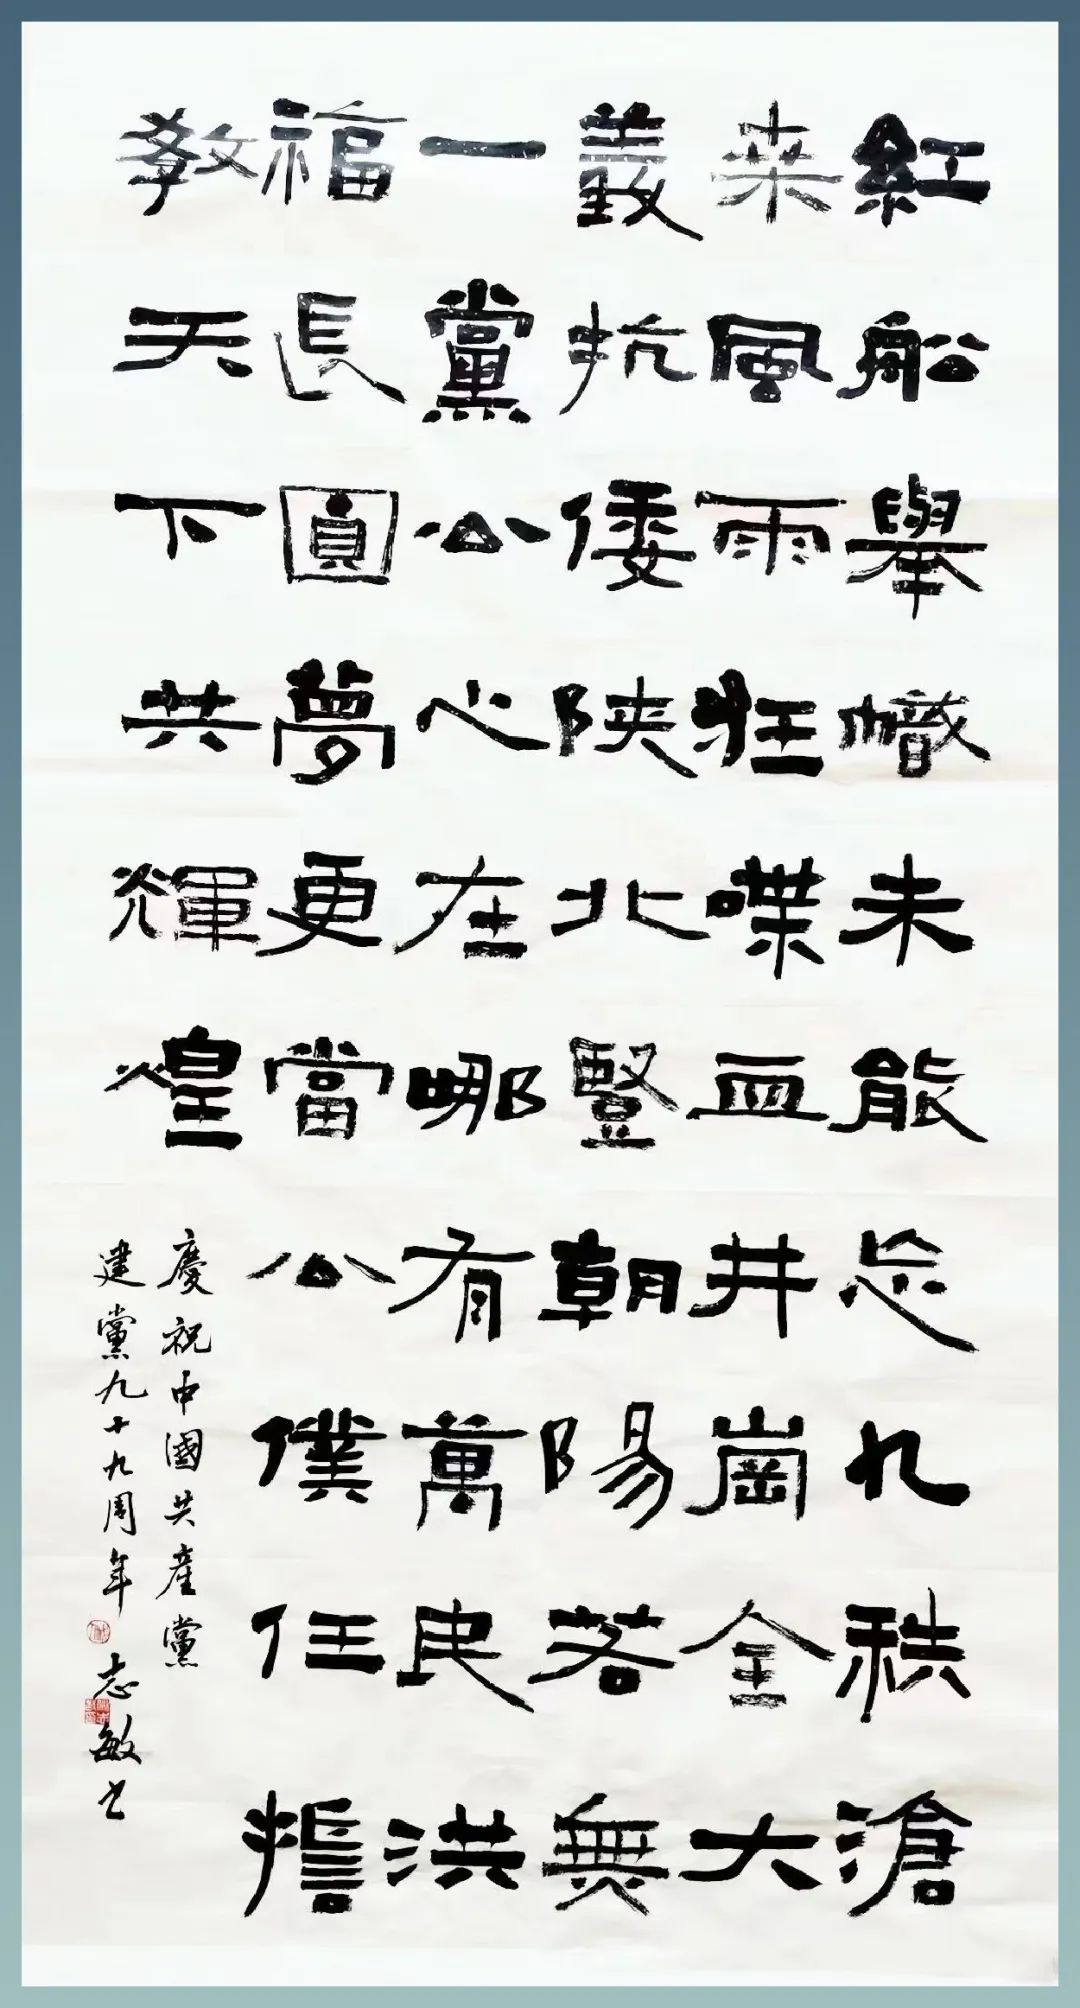 紅船舉幟未能忘九秩滄
桒風雨狂喋血井崗全大
義抗倭陝北豎朝陽若無
一黨公心在哪有萬民洪
福長圓夢更當公僕任擔
教天下共輝煌
慶祝中國共產黨
建黨九十九周年 志敏书